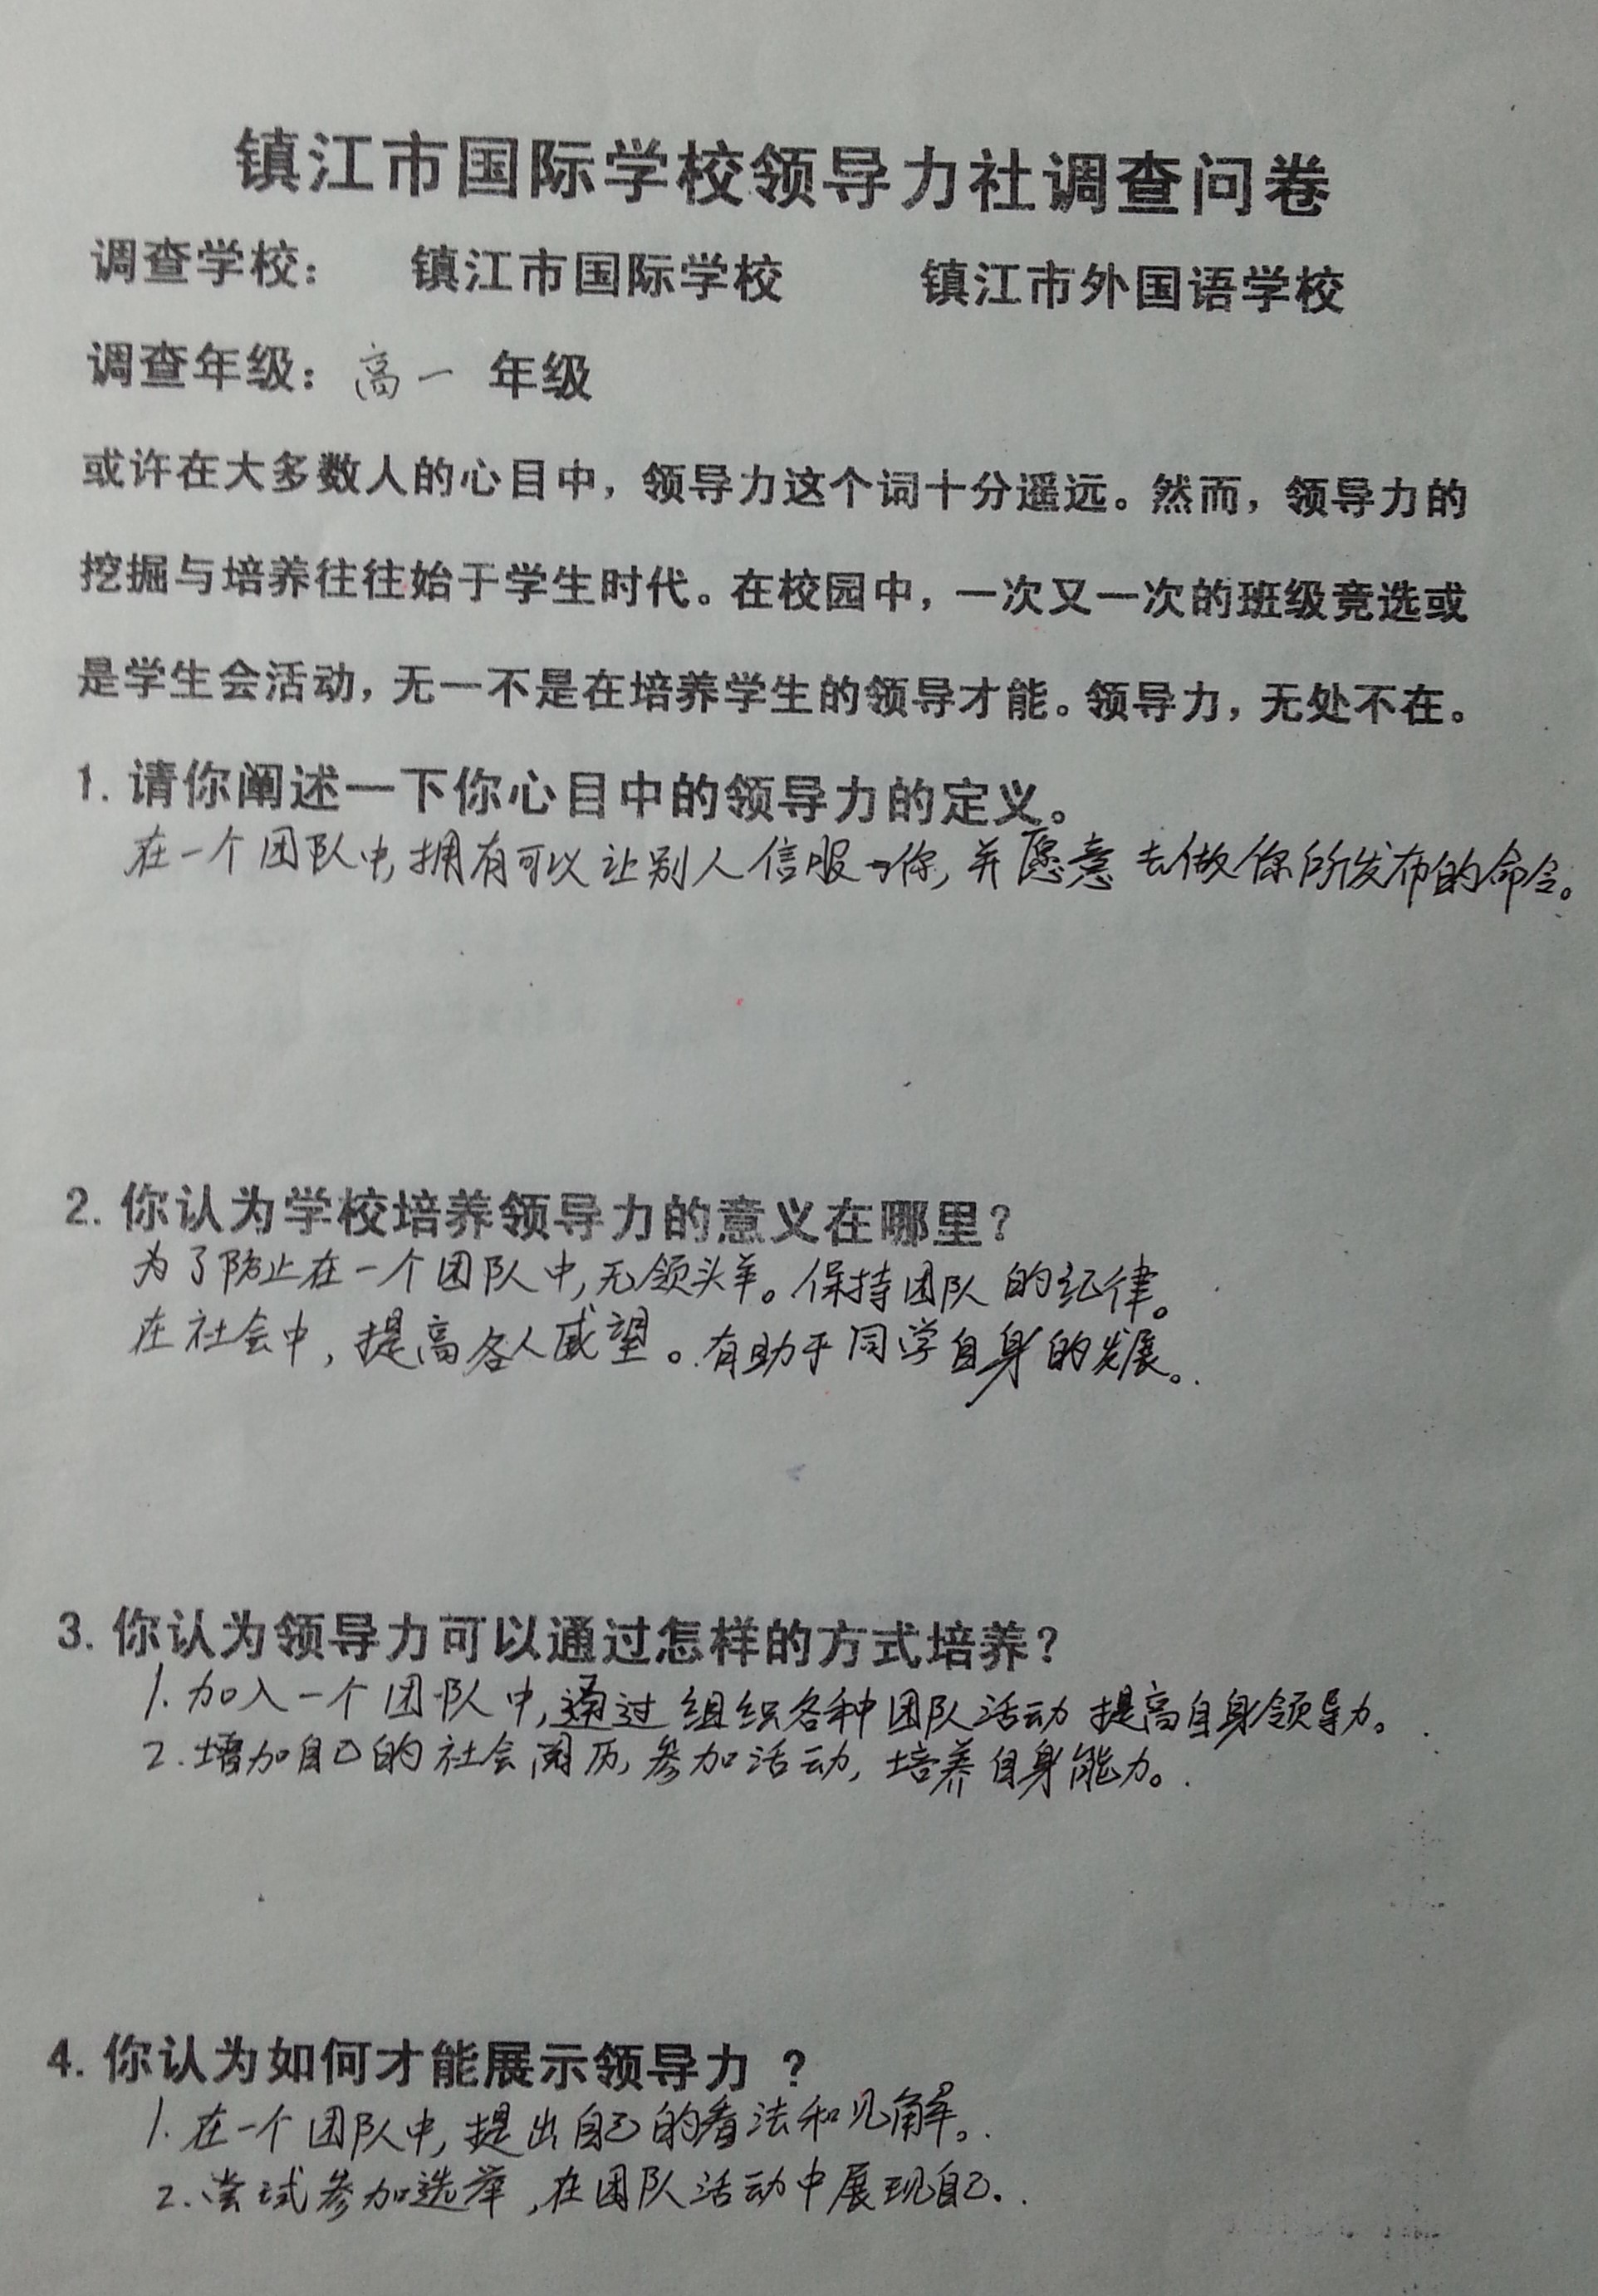 镇江市国际学校领导力社调查问卷
调查学校： 镇江市国际学校 镇江市外国语学校
调查年级：高一 年级
或许在大多数人的心目中，领导力这个词十分遥远。然而，领导力的
挖掘与培养往往始于学生时代。在校园中，一次又一次的班级竞选或
是学生会活动，无一不是在培养学生的领导才能。领导力，无处不在。
1. 请你阐述一下你心目中的领导力的定义。
在一个团队中,拥有可以让别人信服与你,并愿意去做你所发布的命令。
2. 你认为学校培养领导力的意义在哪里？
为了防止在一个团队中,无领头羊。保持团队的纪律。
在社会中,提高各人威望。有助于同学自身的发展。
3. 你认为领导力可以通过怎样的方式培养？
1.加入一个团队中,通过组织各种团队活动提高自身领导力。
2.增加自己的社会阅历,参加活动,培养自身能力。
4. 你认为如何才能展示领导力 ？
1.在一个团队中,提出自己的看法和见解。
2.尝试参加选举,在团队活动中展现自己.